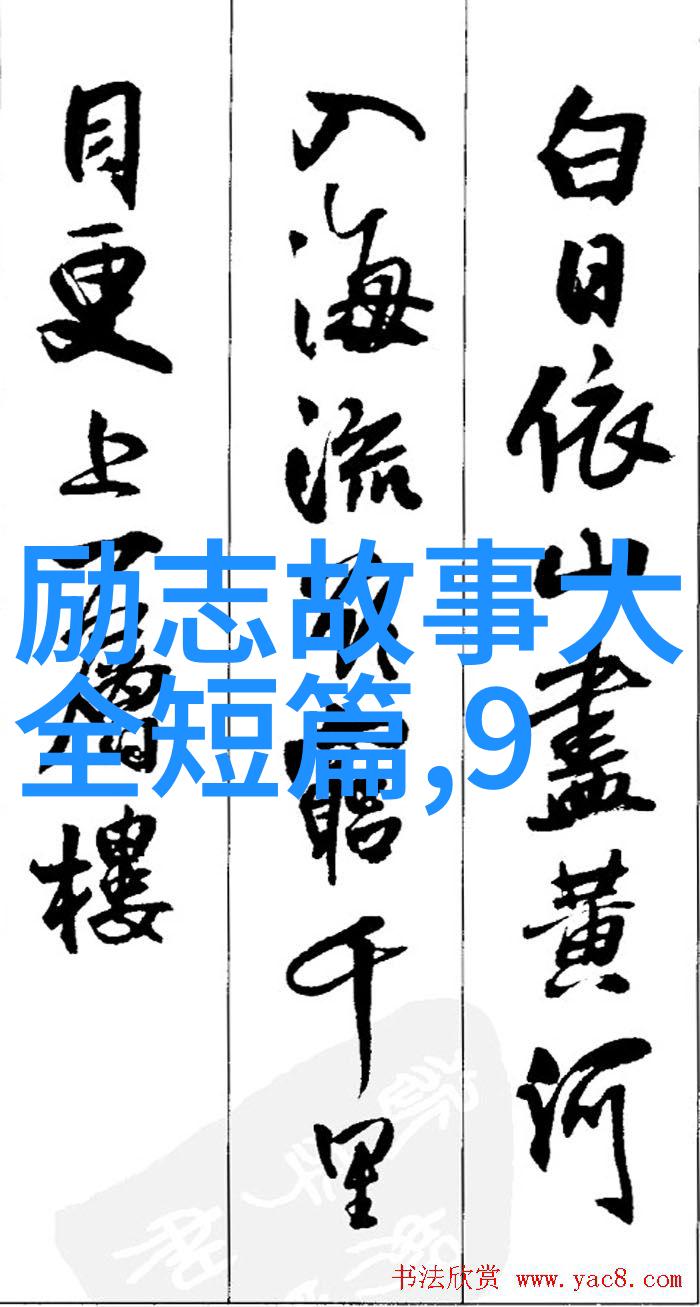 白日依山盡黃河
入海流欲窮千里
目更上一層樓
励志故事大
全短篇,9
书法欣赏 www.yac8.com